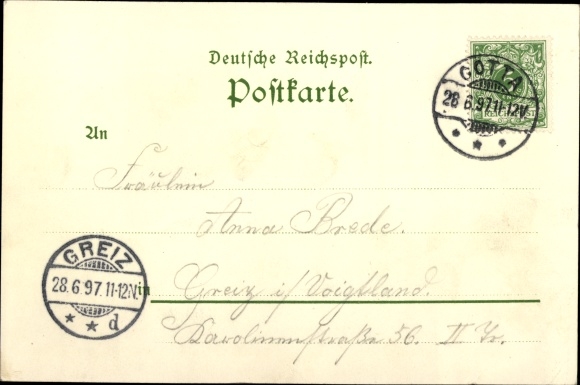 Deutsche Reichspost.
Postkarte.
GOTTA
28.6.97.11-12V.
An
Fräulein
Anna Brede.
GREIZ
28.6.97.11-12N.
d
in
Greiz i/Voigtland.
Karolinenstraße 56. II Tr.